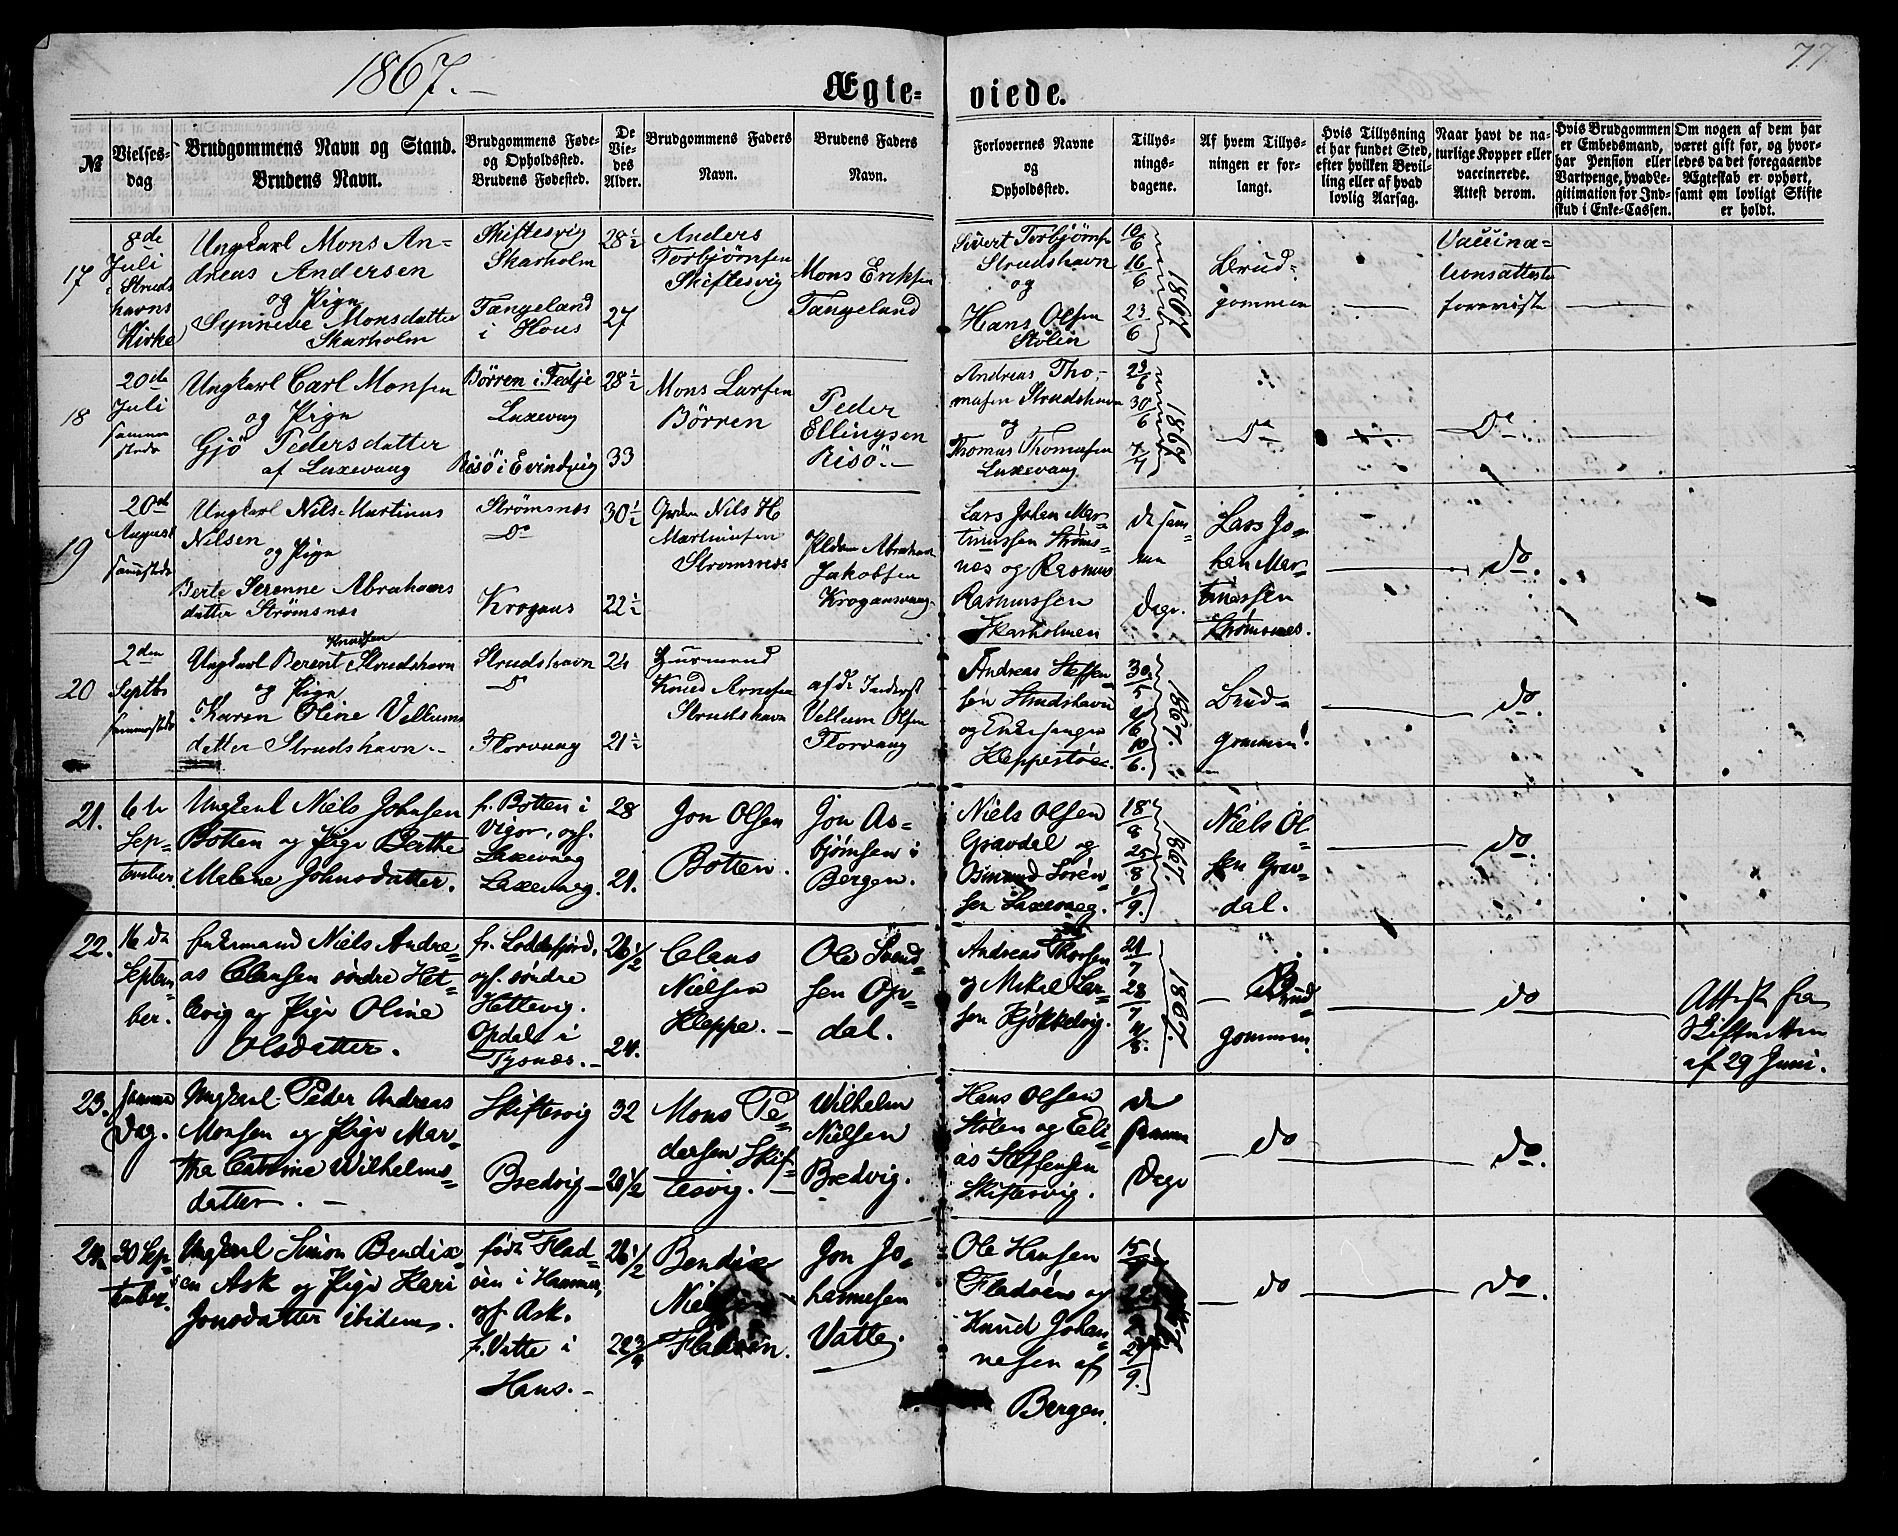 1867.
77
Ægte-
viede.
№
Vielses-
dag
Brudgommens Navn og Stand.
Brudens Navn.
Brudgommens Føde-
og Opholdssted.
Brudens Fødested.
De
Vie-
des
Alder.
Brudgommens Faders
Navn.
Brudens Faders
Navn.
Forlovernes Navne
og
Opholdssted.
Tillys-
nings-
dagene.
Af hvem Tillys-
ningen er for-
langt.
Hvis Tillysning
ei har fundet Sted,
efter hvilken Bevil-
ling eller af hvad
lovlig Aarsag.
Naar havt de na-
turlige Kopper eller
vaccinerede.
Attest derom.
Hvis Brudgommen
er Embedsmand,
har Pension eller
Vartpenge, hvad Le-
gitimation for Ind-
skud i Enke-Cassen.
Om nogen af dem har
været gift før, og hvor-
ledes da det foregaaende
Ægteskab er ophørt,
samt om lovligt Skifte
er holdt.
17
8de
Juli
i Struds
havns
Kirke
Ungkarl Mons An-
dreas Andersen
og Pige
Synneve Monsdatter
Skarholm
Skiftesvig
Skarholm
Tangeland
i Hous
28½
27
Anders
Torbjørnsen
Skiftesvig
Mons Eriksen
Tangeland
Sivert Torbjørns
Strudshavn
og
Hans Olsen
Stølen
10/6
16/6
23/6
1867
Brud-
gommen
Vaccina-
tionsattester
foreviste
18
20de
Juli
sammen
steds
Ungkarl Carl Monsen
og Pige
Gjö Pedersdatter
af Laxevaag
Børren i Fedje
Laxevaag
Risö i Evindvig
28½
33
Mons Larsen
Börren
Peder
Ellingsen
Risö.
Andreas Tho-
masen Strudshavn
og
Thomas Thomasen
Laxevaag
23/6
30/6
7/7
1867
Do
Do
19
20de
August
sammesteds
Ungkarl Nils Martinus
Nilsen
og Pige
Berte Serenne Abrahams
datter Strømsnes
Strømsnes
Do
Krogaas
30½
22½
Nils H
Martinusen
Strømsnes
Abraham
Jakobsen
Krogaasvaag
Lars Johan Mar-
tinussen Strøms-
nes og Rasmus
Rasmussen
Skarholmen
de sam-
me
Dage.
Lars Jo-
han Mar-
tinussen
Strømsnes.
do.
20
2den
Septbr
sammesteds
Knudsen
Ungkarl Berent Strudshavn
og Pige
Karen Oline Vellums
datter Strudshavn.
Strudshavn
Do
Florvaag
24
21½
Knud Arnesen
Strudshavn
afd. Inderst
Vellum Olsen
Florvaag
Andreas Steffen-
sen Strudshavn
og
Kleppestøe.
30/5
2/6
10/6
1867.
Brud-
gommen.
do
21.
6te
Sep-
tember.
Ungkarl Niels Johnsen
Botten og Pige Berthe
Malene Johnsdatter.
f. Botten i
Vigør, opf.
Laxevaag
Laxevaag.
28
21.
Jon Olsen
Botten.
Jon As-
bjørnsen i
Bergen.
Niels Olsen
Gravdal og
Osmund Søren-
sen Laxevaag.
18/8
25/8
1/9.
1867.
Niels Ol-
sen Grav-
dal.
do.
22.
16 de
Septem-
ber.
Enkemand Niels Andre-
as Clausen søndre Het-
levig og Pige Oline
Olsdatter.
f. Loddefjord,
opf. søndre
Hetlevig.
Opdal i
Tysnæs.
26½
24.
Claus
Nielsen
Kleppe.
Ole Svend-
sen Op-
dal.
Andreas Thorsen
og Mikal Lar-
sen Kjøkkelvig.
21/7
28/7
4/8.
1867.
Brud-
gommen.
do
Attest fra
Skifteretten
af 29 Juni.
23.
samme
Dag.
Ungkarl Peder Andreas
Monsen og Pige Mar-
tha Cathrine Wilhelms-
datter.
Skiftesvig
Bredvig
32
20½
Mons Pe-
dersen Skif-
tesvig.
Wilhelm
Nielsen
Bredvig.
Hans Olsen
Stølen og Eli-
as Steffensen
Skiftesvig.
de
samme
Dage
do
do.
24.
30 Sep-
tember.
Ungkarl Simon Bendix-
en Ask og Pige Kari
Jonsdatter ibidem.
født Flad-
øen i Hammer,
opf. Ask.
f. Vatle i
Haus.
26½
22¾
Bendix
Nielsen
Fladøen.
Jon Jo-
hannesen
Vatle.
Ole Hansen
Fladøen og
Knud Johan-
nesen af
Bergen.
15/9
22/9
29/9.
1867
do
do.